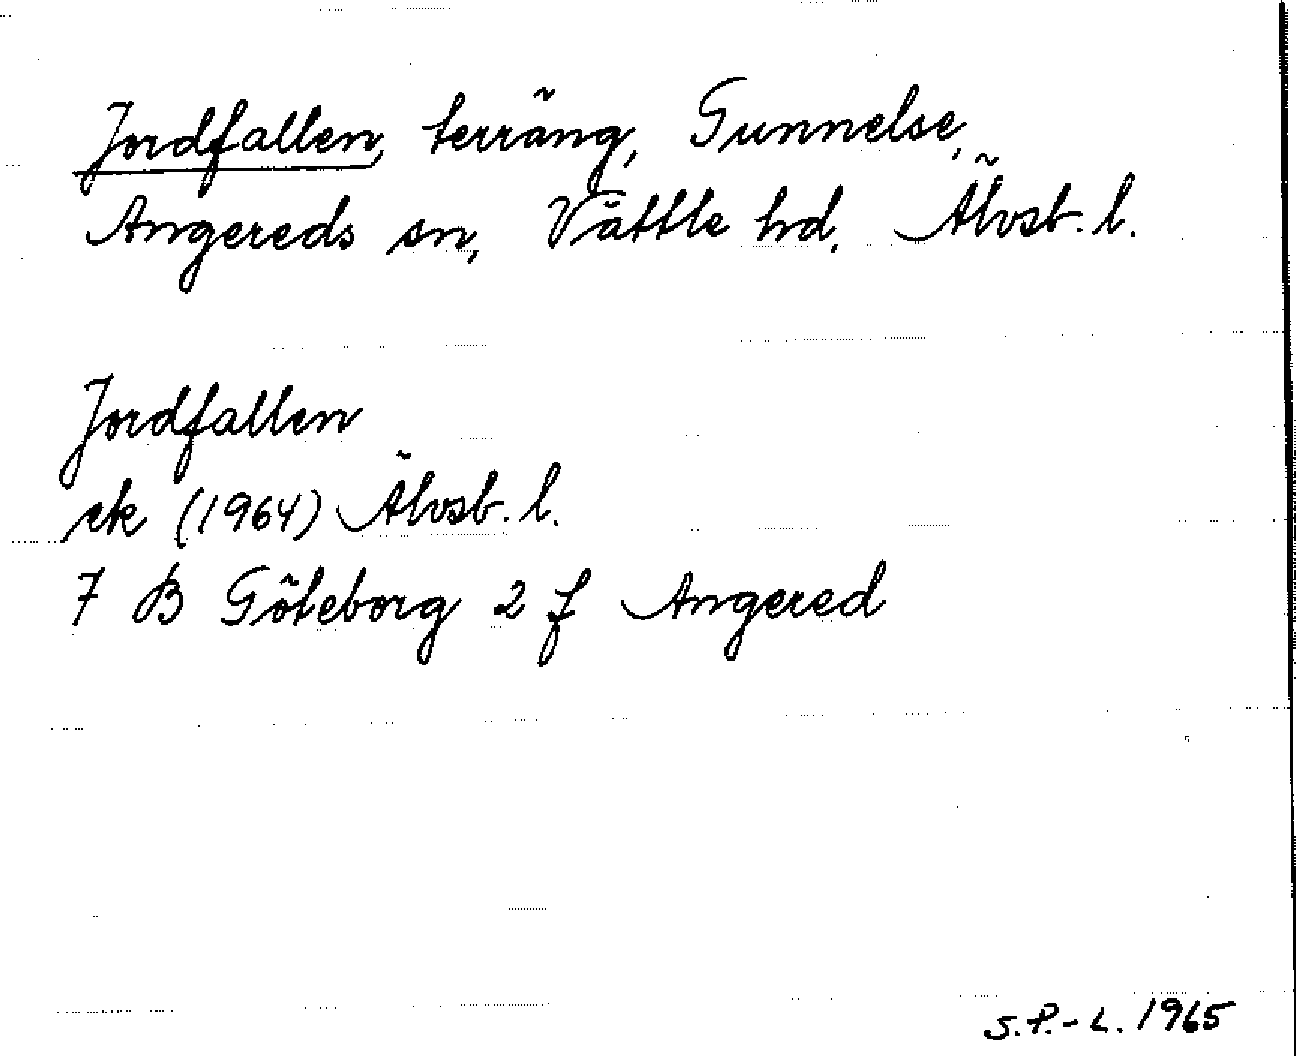 Jordfallen, terräng, Gunnelse,
Angereds sn, Vättle hd, Älvsb. l.
Jordfallen
ek (1964) Älvsb. l.
7 B Göteborg 2 f Angered
S.P.-L. 1965